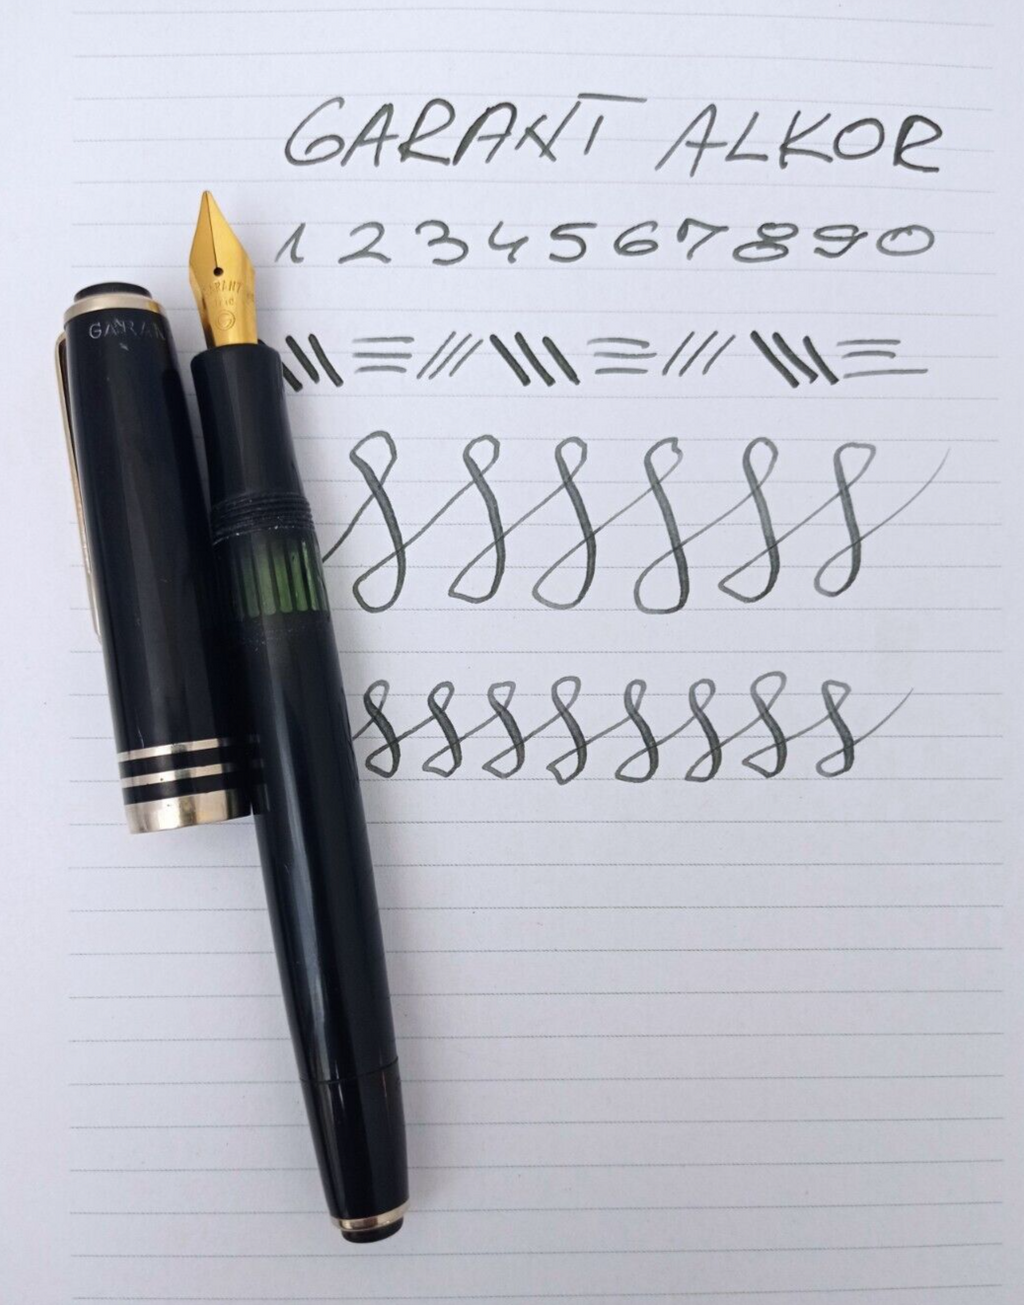 GARANT ALKOR
1 2 3 4 5 6 7 8 9 0
GARANT